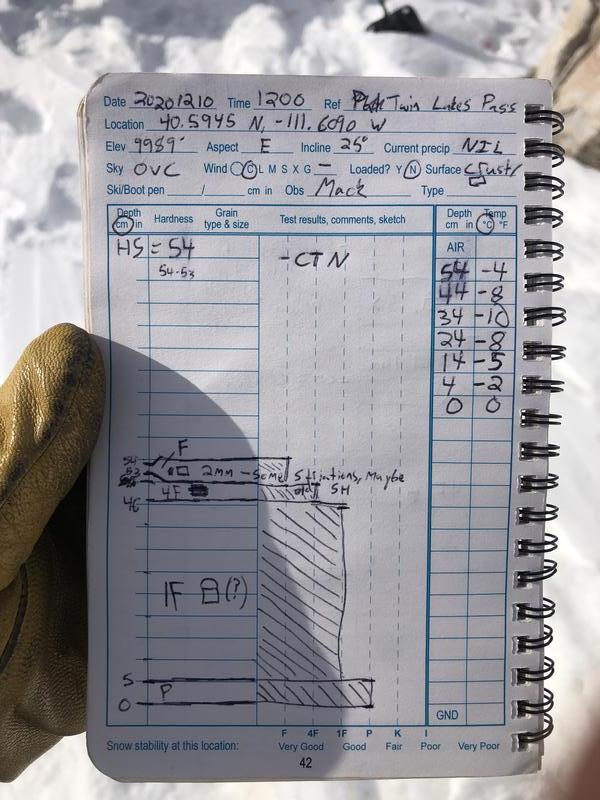 Date 20201210 Time 1200 Ref Twin Lakes Pass
Location 40.5945 N, -111.6090 W
Elev 9989' Aspect E Incline 25° Current precip NIL
Sky OVC Wind C L M S X G — Loaded? Y N Surface
Ski/Boot pen / cm in Obs Mack Type
Depth cm in Hardness Grain type & size Test results, comments, sketch Depth cm in Temp °C °F
HS = 54 -CTN AIR
54-53 54 -4
44 -8
34 -10
24 -8
14 -5
4 -2
0 0
54 F
53 2mm - Some Striations, Maybe
4F old SH
46
1F (?)
5
P
0 GND
F 4F 1F P K I
Snow stability at this location: Very Good Good Fair Poor Very Poor
42